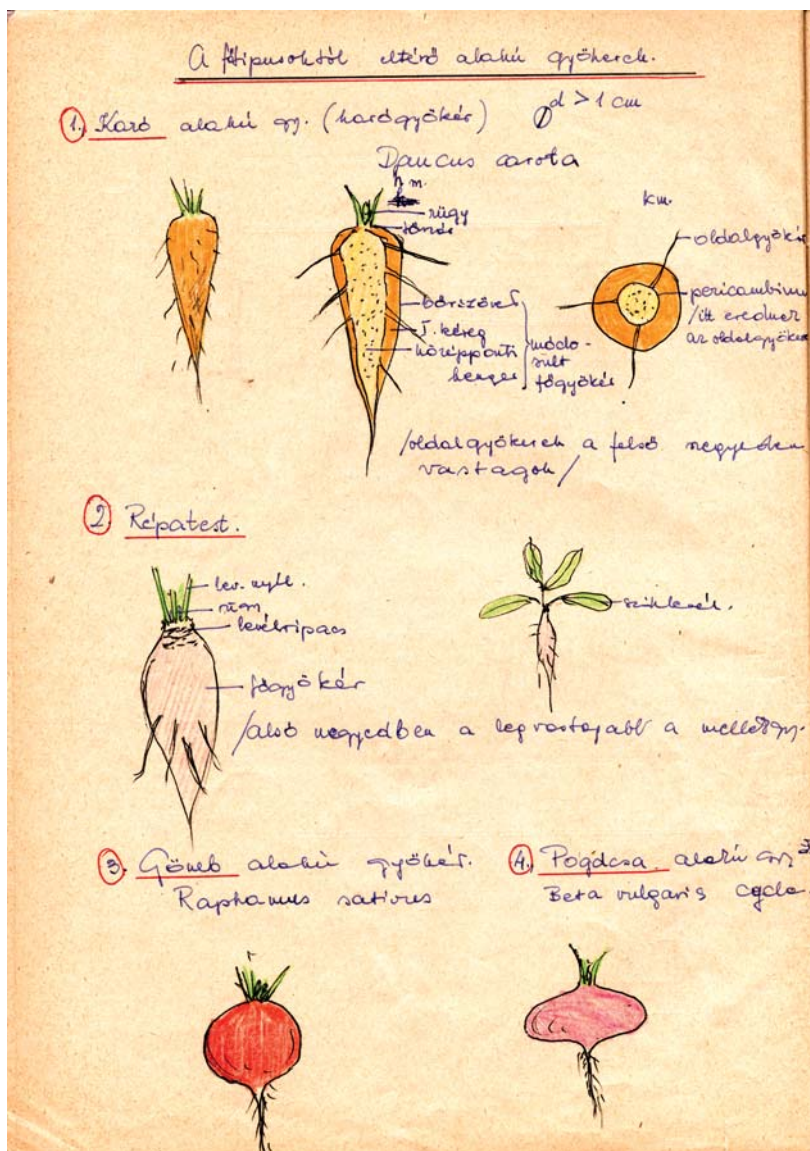 A főtipusoktól eltérő alakú gyökerek.
1. Karó alakú gy. (karógyökér) d > 1 cm
Daucus carota
h.m.
rügy
törzs
bőrszövet
I. kéreg
középponti
henger
módo-
sult
főgyökér
km.
oldalgyökér
pericambium
/itt erednek
az oldalgyökerek
/oldalgyökerek a felső negyedben
vastagok/
2. Répatest.
lev. nyél.
rügy
levélripacs
főgyökér
sziklevél.
/alsó negyedben a legvastagabb a mellékgy.
3. Gömb alakú gyökér.
Raphanus sativus
4. Pogácsa alakú gy.
Beta vulgaris